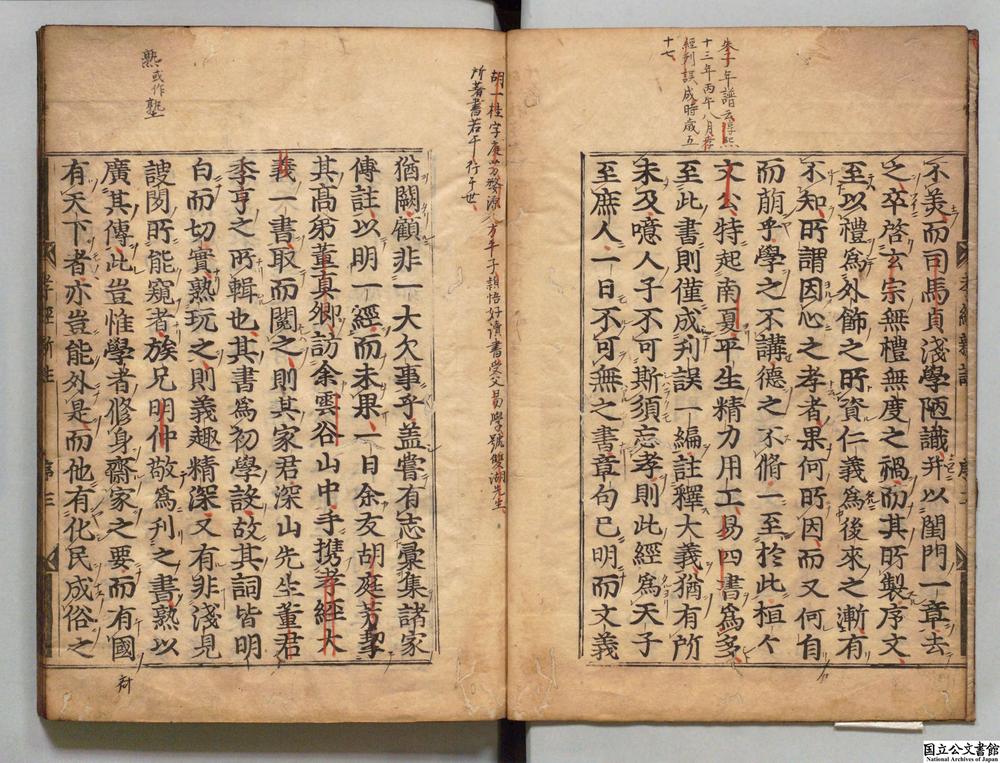 不美而司馬貞淺學陋識并以閨門一章去
之卒啓玄宗無禮無度之禍而其所製序文
至以禮爲外飾之所資仁義爲後來之漸有
不知所謂因心之孝者果何所因而又何自
而萌乎學之不講德之不脩一至於此桓々
文公特起南夏平生精力用工易四書爲多
至此書則僅成刋誤一編註釋大義猶有所
未及噫人子不可斯須忘孝則此經爲天子
至庶人一日不可無之書章句已明而文義
猶闕顧非一大欠事乎蓋嘗有志彙集諸家
傳註以明一經而未果一日余友胡庭芳挈
其高弟董真卿訪余雲谷山中手携孝經大
義一書取而閲之則其家君深山先生董君
季亨之所輯也其書爲初學設故其詞皆明
白而切實熟玩之則義趣精深又有非淺見
謏聞所能窺者族兄明仲敬爲刋之書熟以
廣其傳此豈惟學者修身齊家之要而有國
有天下者亦豈能外是而他有化民成俗之
朱子年譜云淳熙
十三年丙午八月孝
經刋誤成時歳五
十七
胡一桂字庭芳婺源人方平子穎悟好讀書受父易學號雙湖先生
所著書若干行于世
熟或作塾
孝經新註
序三
国立公文書館
National Archives of Japan